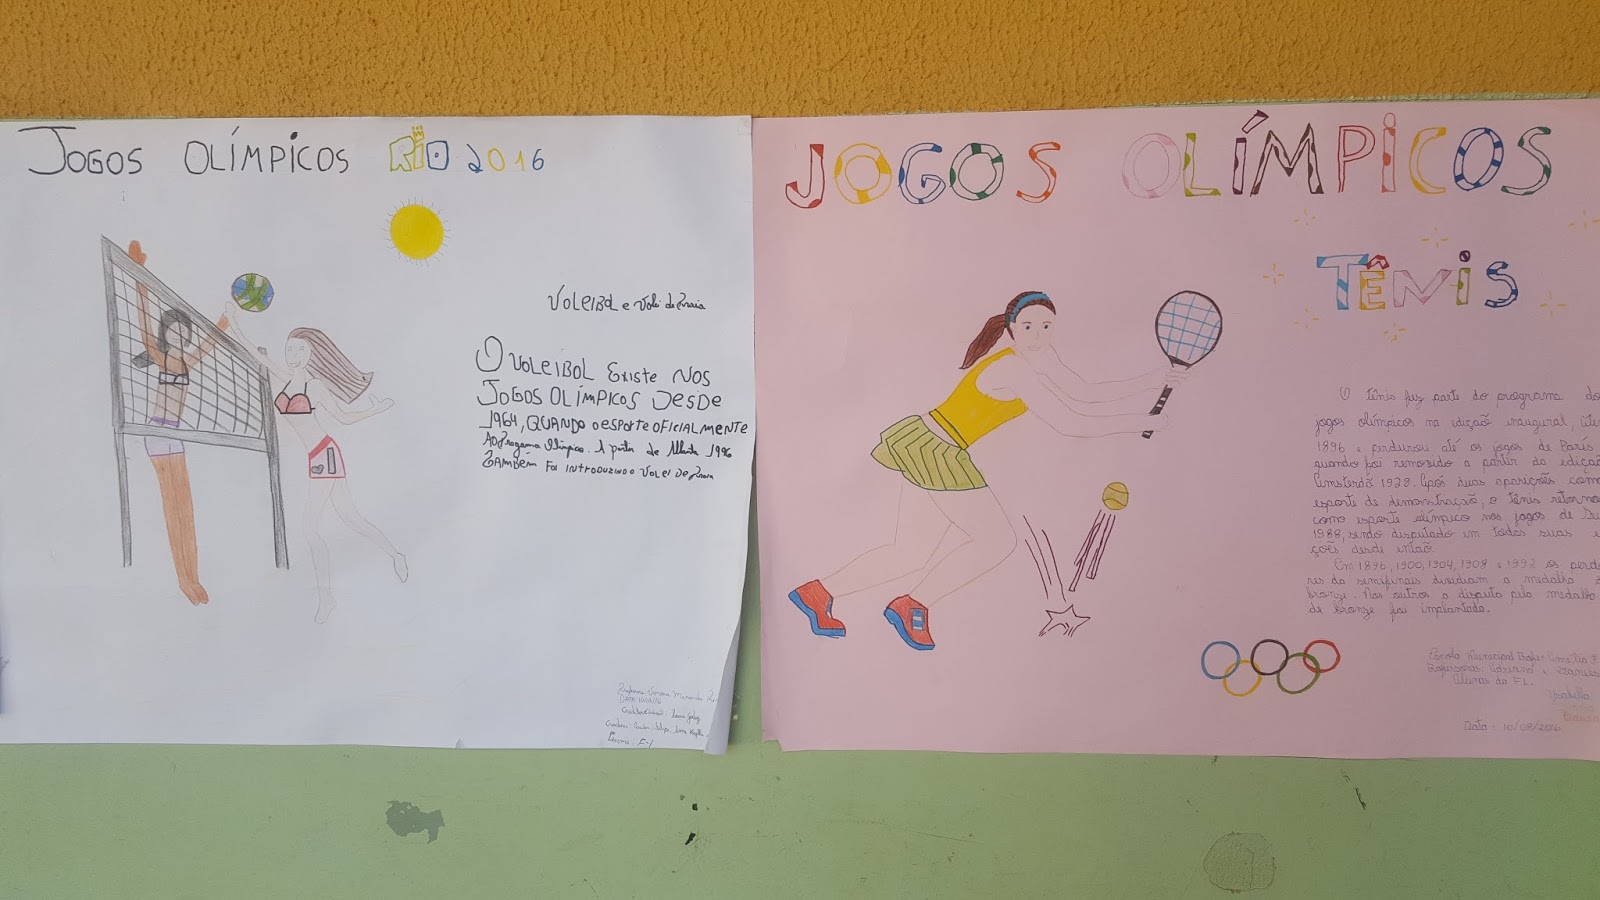 JOGOS OLÍMPICOS RIO 2016
VOLEIBOL e Volei de Praia
O VOLEIBOL EXISTE NOS
JOGOS OLÍMPICOS DESDE
1964, QUANDO O ESPORTE OFICIALMENTE
AO Programa Olímpico. A partir de Atlanta 1996
TAMBÉM FOI INTRODUZINDO O VOLEI DE PRAIA
DATA:
Turma: F-1
JOGOS OLÍMPICOS
TÊNIS
O tênis fez parte do programa dos
jogos olímpicos na edição inaugural,
1896 e perdurou até os jogos de Paris
quando foi removido a partir da edição
Amsterdã 1928. Após duas aparições como
esporte de demonstração, o tênis retornou
como esporte olímpico nos jogos de
1988, sendo disputado em todas suas
ções desde então.
Em 1896, 1900, 1904, 1908 e 1992 os perde
res da semifinais dividiam a medalha
bronze. Nas outros a disputa pela medalha
de bronze foi implantada.
Escola Municipal
Professoras: Adriana e
Alunas da F1.
Data: 10/08/2016